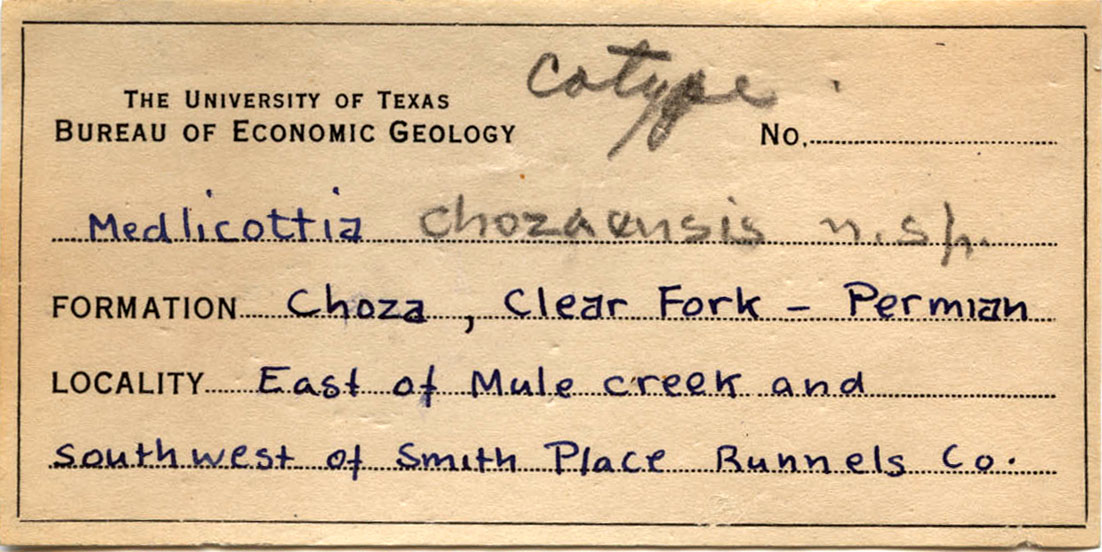 cotype
THE UNIVERSITY OF TEXAS
BUREAU OF ECONOMIC GEOLOGY
No.
Medlicottia chozaensis n.sp.
FORMATION Choza, Clear Fork - Permian
LOCALITY East of Mule creek and
southwest of Smith Place Runnels Co.